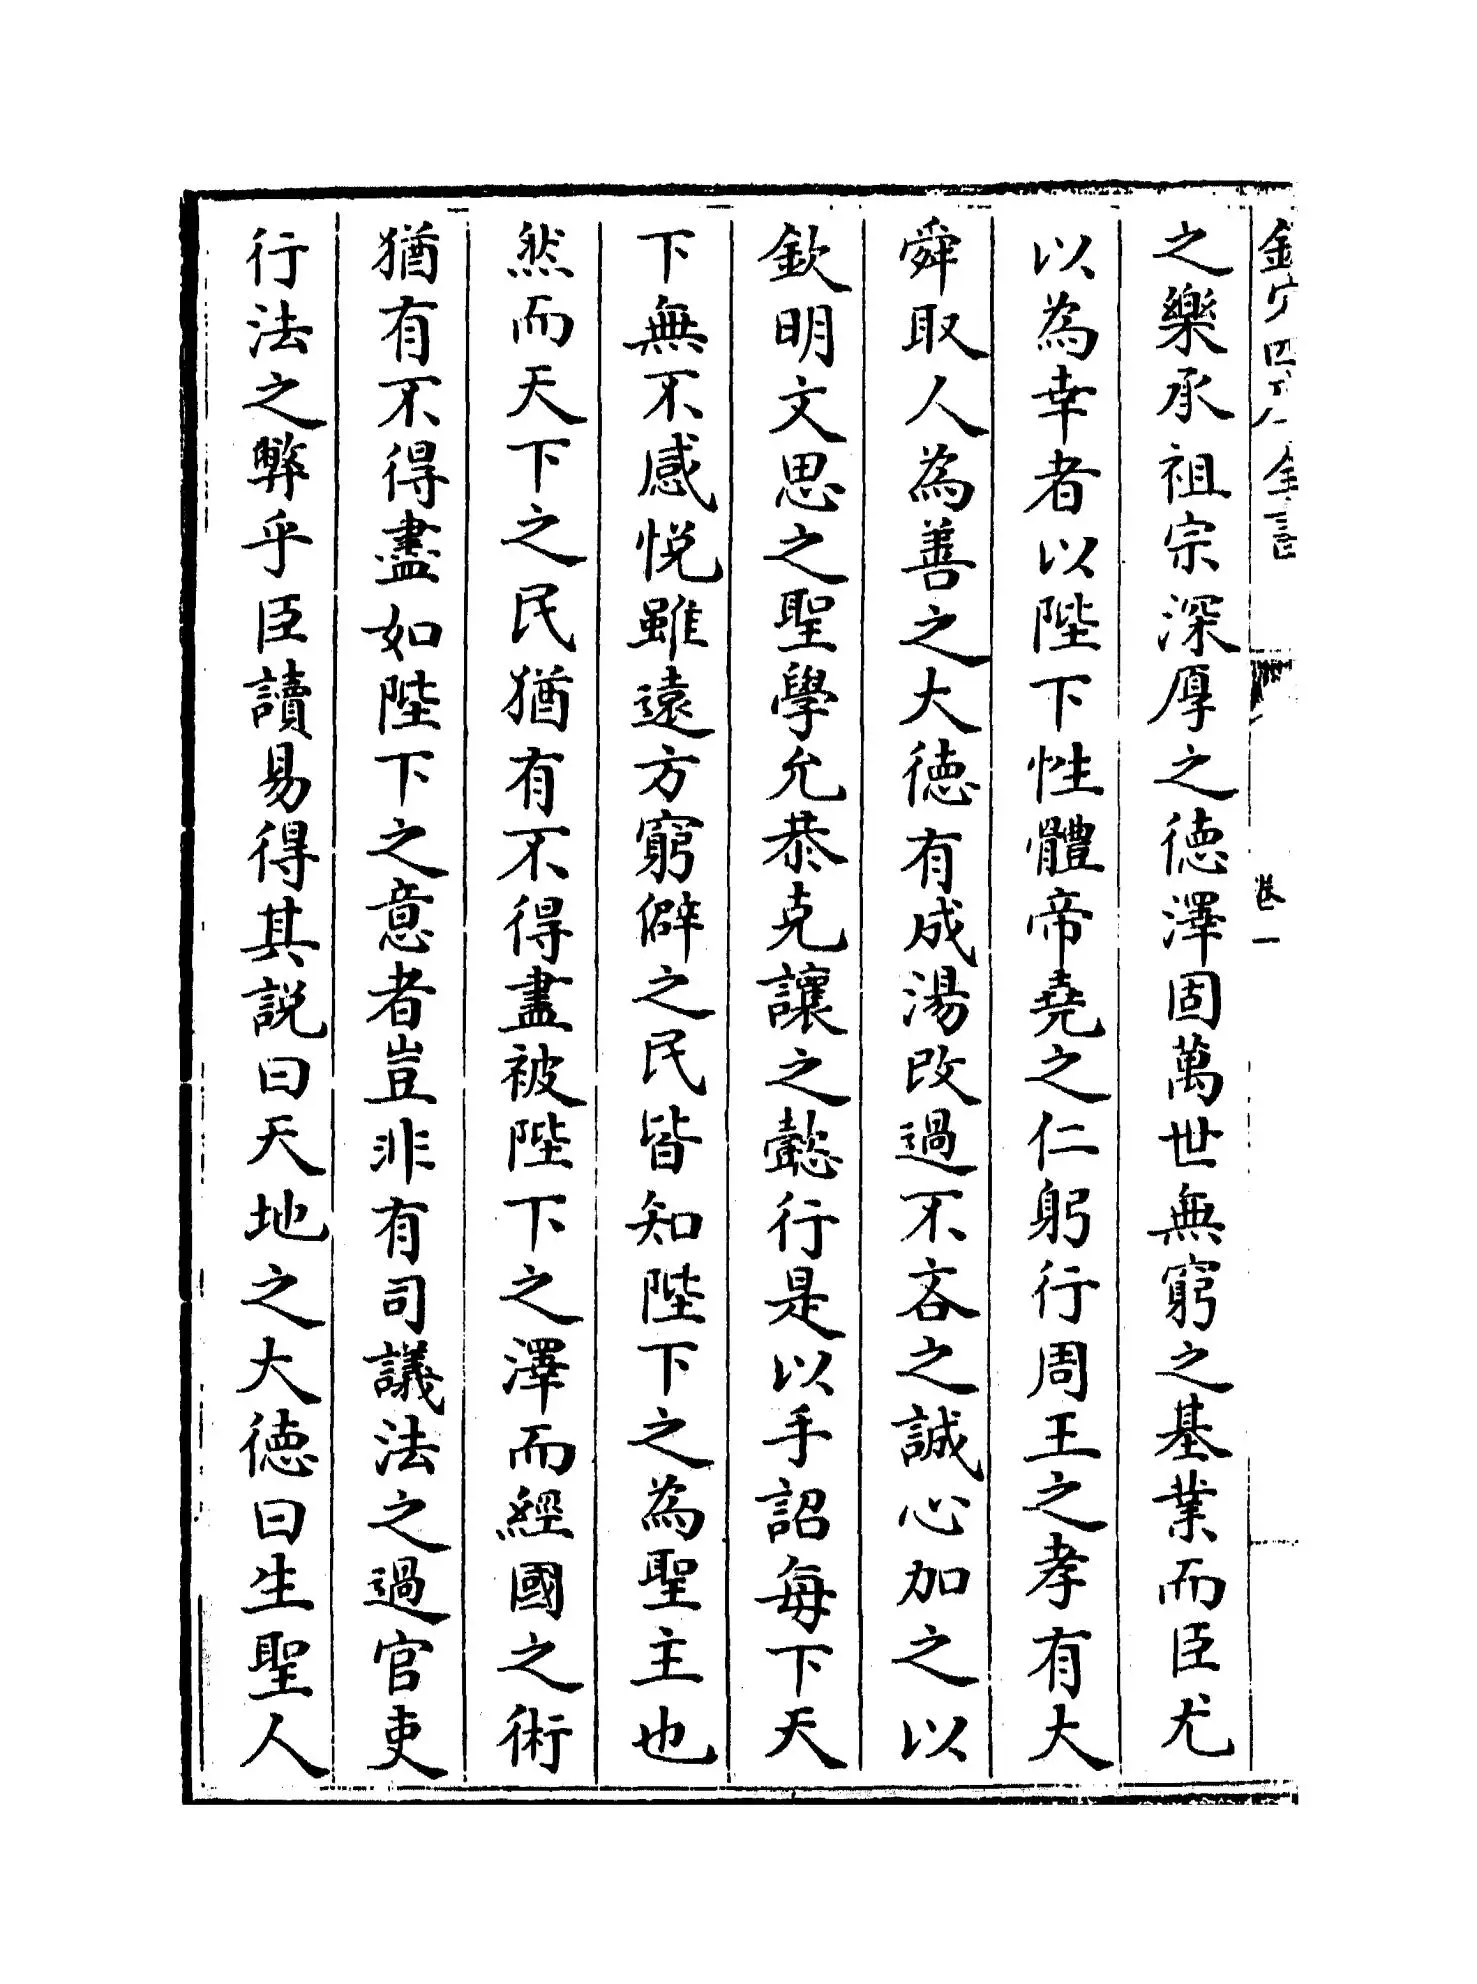 之樂承祖宗深厚之德澤固萬世無窮之基業而臣尤
以為幸者以陛下性體帝堯之仁躬行周王之孝有大
舜取人為善之大德有成湯改過不吝之誠心加之以
欽明文思之聖學允恭克讓之懿行是以手詔每下天
下無不感悅雖遠方窮僻之民皆知陛下之為聖主也
然而天下之民猶有不得盡被陛下之澤而經國之術
猶有不得盡如陛下之意者豈非有司議法之過官吏
行法之弊乎臣讀易得其説曰天地之大德曰生聖人
卷一